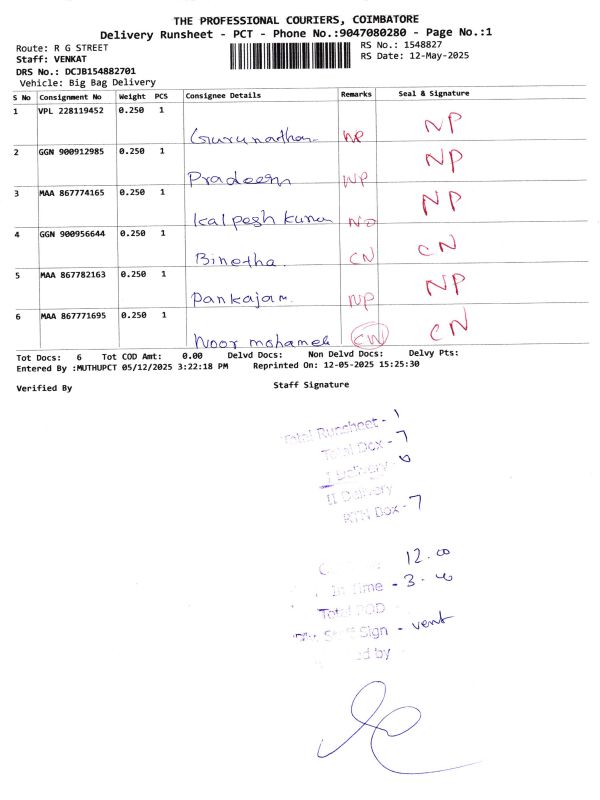 THE PROFESSIONAL COURIERS, COIMBATORE
Delivery Runsheet - PCT - Phone No.:9047080280 - Page No.:1
Route: R G STREET RS No.: 1548827
Staff: VENKAT RS Date: 12-May-2025
DRS No.: DCJB154882701
Vehicle: Big Bag Delivery
S No Consignment No Weight PCS Consignee Details Remarks Seal & Signature
1 VPL 228119452 0.250 1 Gurunadhan NP NP
2 GGN 900912985 0.250 1 Pradeesh NP NP
3 MAA 867774165 0.250 1 Kalpesh Kumar NP NP
4 GGN 900956644 0.250 1 Binetha CN CN
5 MAA 867782163 0.250 1 Pankajam NP NP
6 MAA 867771695 0.250 1 Noor mohamed CN CN
Tot Docs: 6 Tot COD Amt: 0.00 Delvd Docs: Non Delvd Docs: Delvy Pts:
Entered By :MUTHUPCT 05/12/2025 3:22:18 PM Reprinted On: 12-05-2025 15:25:30
Verified By Staff Signature
Total Runsheet - 1
Total Dox - 7
I Delivery - 0
II Delivery
RTN Dox - 7
12.00
In Time - 3.
Total POD
Sign - vent
by